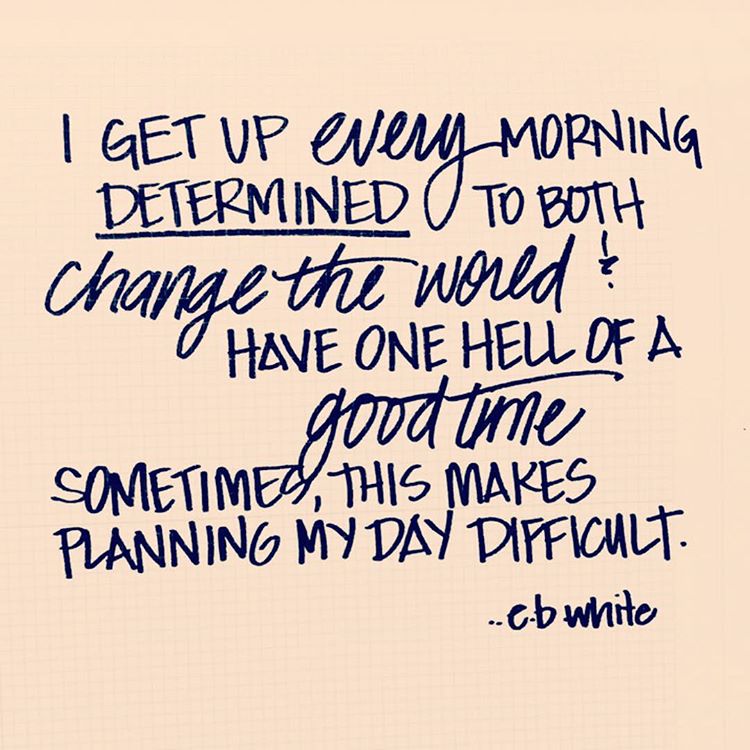 I GET UP every MORNING
DETERMINED TO BOTH
change the world &
HAVE ONE HELL OF A
good time
SOMETIMES, THIS MAKES
PLANNING MY DAY DIFFICULT.
..e.b white